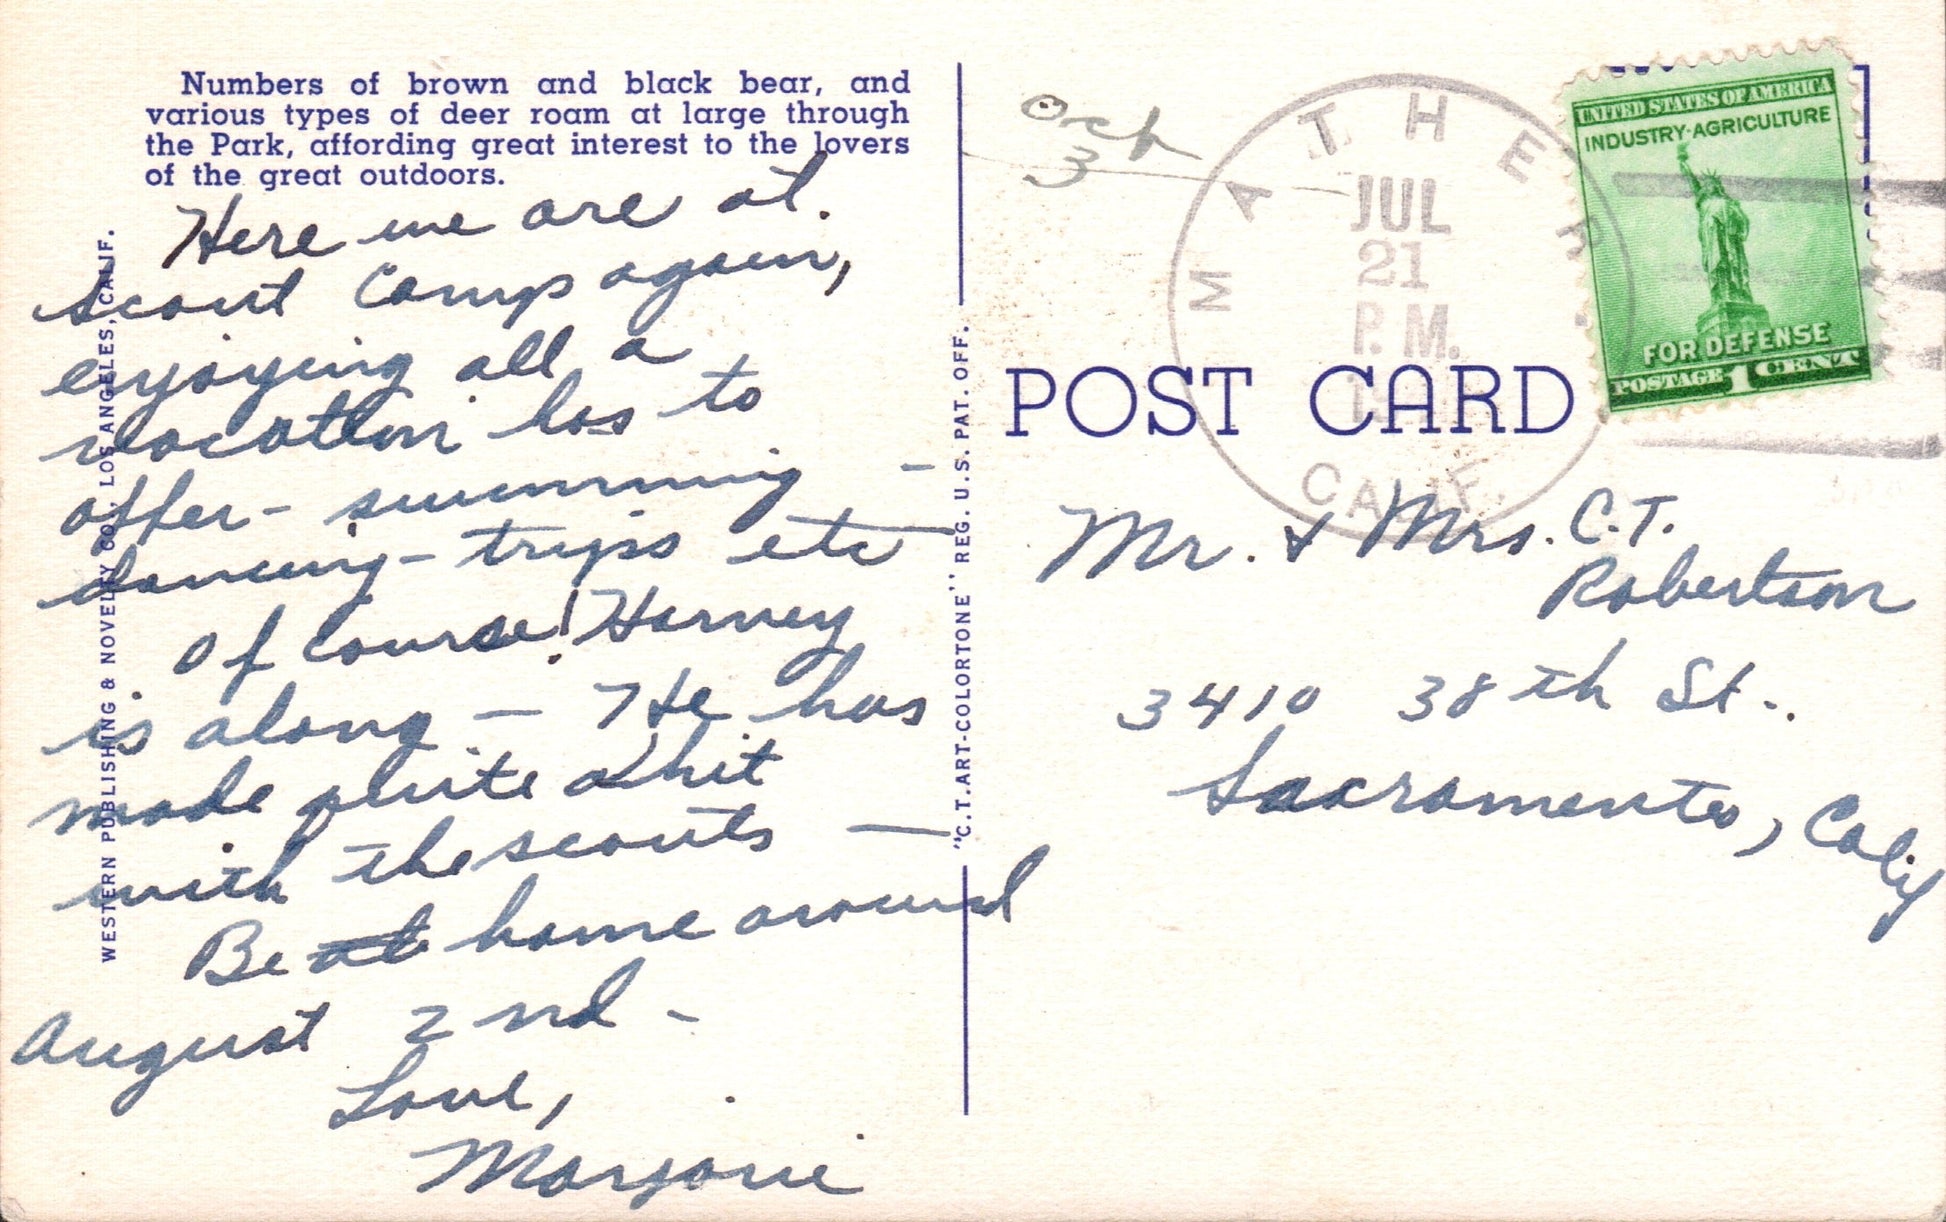 Numbers of brown and black bear, and
various types of deer roam at large through
the Park, affording great interest to the lovers
of the great outdoors.
Here we are at
scout Camp again,
enjoying all a
vacation has to
offer - swimming -
dancing - trips etc -
Of course! Harvey
is along - He has
made quite a hit
with the scouts -
Be at home around
August 2nd -
Love,
Marjorie
WESTERN PUBLISHING & NOVELTY CO., LOS ANGELES, CALIF.
"C. T. ART-COLORTONE" REG. U.S. PAT. OFF.
3
MATHER
JUL
21
P. M.
CALIF.
UNITED STATES OF AMERICA
INDUSTRY·AGRICULTURE
FOR DEFENSE
POSTAGE 1 CENT
POST CARD
Mr. & Mrs. C.T.
Robertson
3410 38th St.
Sacramento, Calif